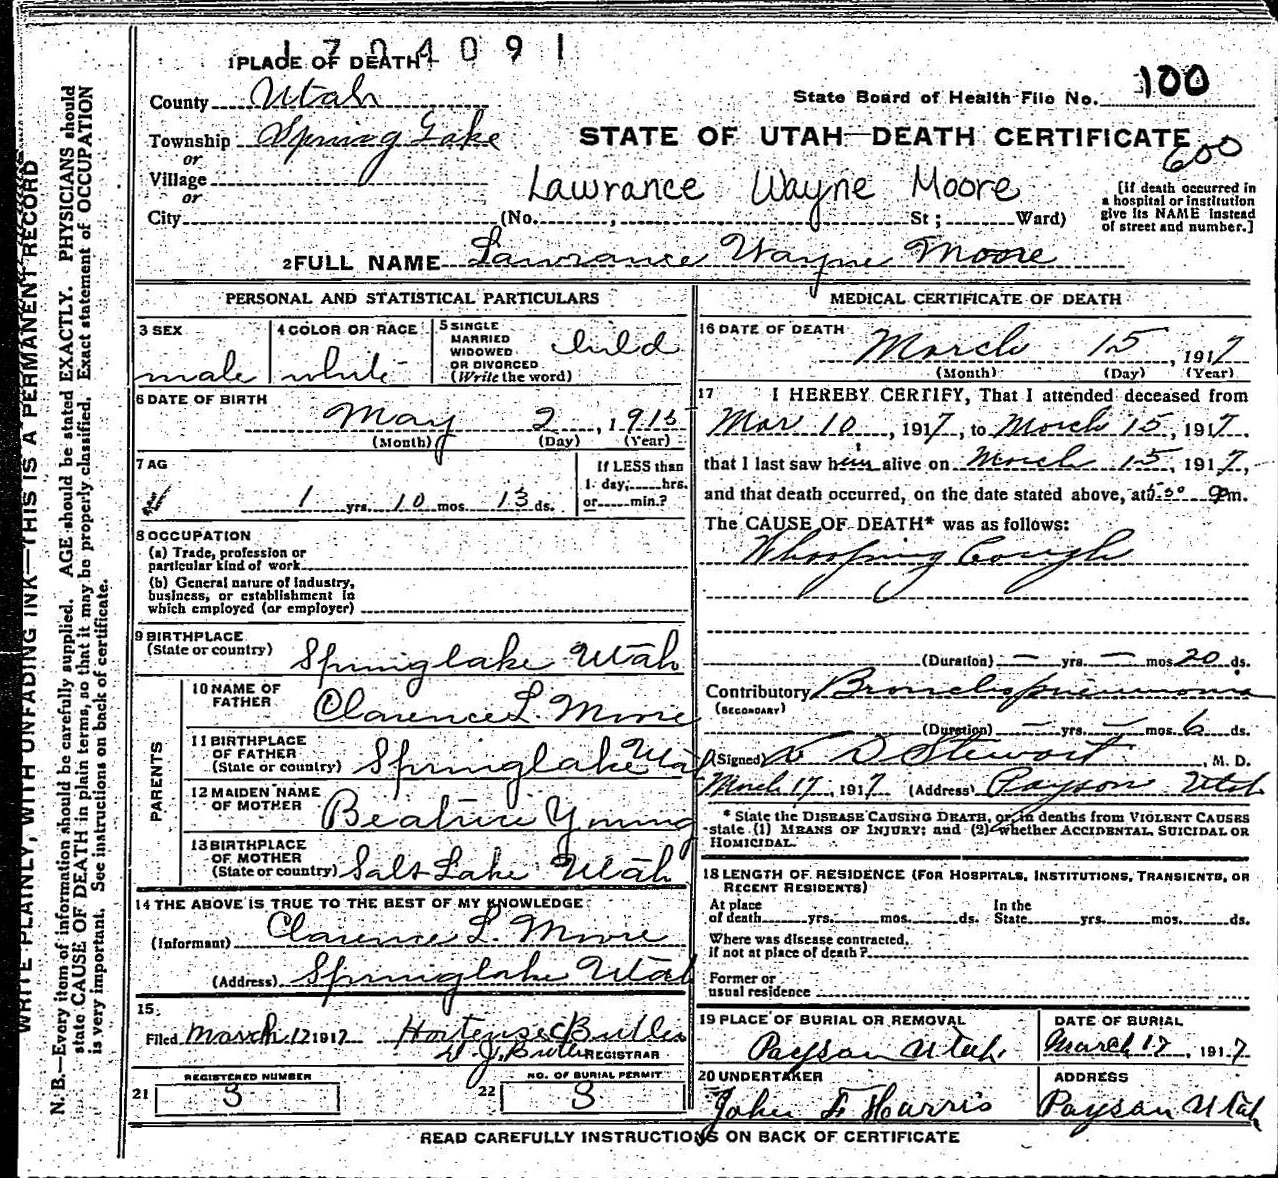 1704091
1 PLACE OF DEATH
County Utah
State Board of Health File No. 100
Township Spring Lake
STATE OF UTAH—DEATH CERTIFICATE
600
or
Village
or
Lawrance Wayne Moore
[If death occurred in a hospital or institution give its NAME instead of street and number.]
City (No. , St; Ward)
2 FULL NAME Lawrance Wayne Moore
PERSONAL AND STATISTICAL PARTICULARS
3 SEX
male
4 COLOR OR RACE
white
5 SINGLE
MARRIED
WIDOWED
OR DIVORCED
(Write the word)
child
6 DATE OF BIRTH
May 2, 1915
(Month) (Day) (Year)
7 AG
1 yrs. 10 mos. 13 ds.
If LESS than
1 day, hrs.
or min.?
8 OCCUPATION
(a) Trade, profession or
particular kind of work
(b) General nature of industry,
business, or establishment in
which employed (or employer)
9 BIRTHPLACE
(State or country)
Springlake Utah
PARENTS
10 NAME OF
FATHER
Clarence L. Moore
11 BIRTHPLACE
OF FATHER
(State or country)
Springlake Utah
12 MAIDEN NAME
OF MOTHER
Beatrice Young
13 BIRTHPLACE
OF MOTHER
(State or country)
Salt Lake Utah
14 THE ABOVE IS TRUE TO THE BEST OF MY KNOWLEDGE
(Informant) Clarence L. Moore
(Address) Springlake Utah
15.
Filed March 17 1917 Hortense C Butler
REGISTRAR
REGISTERED NUMBER
21 3
NO. OF BURIAL PERMIT
22 3
MEDICAL CERTIFICATE OF DEATH
16 DATE OF DEATH
March 15, 1917
(Month) (Day) (Year)
17 I HEREBY CERTIFY, That I attended deceased from
Mar 10, 1917, to March 15, 1917.
that I last saw him alive on March 15, 1917,
and that death occurred, on the date stated above, at 5:30 Pm.
The CAUSE OF DEATH* was as follows:
Whooping Cough
(Duration) — yrs. — mos. 20 ds.
Contributory Bronchopneumonia
(SECONDARY)
(Duration) — yrs. — mos. 6 ds.
(Signed) D Stewart, M. D.
March 17, 1917 (Address) Payson Utah
* State the DISEASE CAUSING DEATH, or, in deaths from VIOLENT CAUSES
state (1) MEANS OF INJURY; and (2) whether ACCIDENTAL, SUICIDAL OR
HOMICIDAL.
18 LENGTH OF RESIDENCE (FOR HOSPITALS, INSTITUTIONS, TRANSIENTS, OR
RECENT RESIDENTS)
At place In the
of death yrs. mos. ds. State yrs. mos. ds.
Where was disease contracted,
if not at place of death?
Former or
usual residence
19 PLACE OF BURIAL OR REMOVAL
Payson Utah.
DATE OF BURIAL
March 17, 1917
20 UNDERTAKER
John F Harris
ADDRESS
Payson Utah
READ CAREFULLY INSTRUCTIONS ON BACK OF CERTIFICATE
WRITE PLAINLY, WITH UNFADING INK—THIS IS A PERMANENT RECORD
N. B.—Every item of information should be carefully supplied. AGE should be stated EXACTLY. PHYSICIANS should
state CAUSE OF DEATH in plain terms, so that it may be properly classified. Exact statement of OCCUPATION
is very important. See instructions on back of certificate.